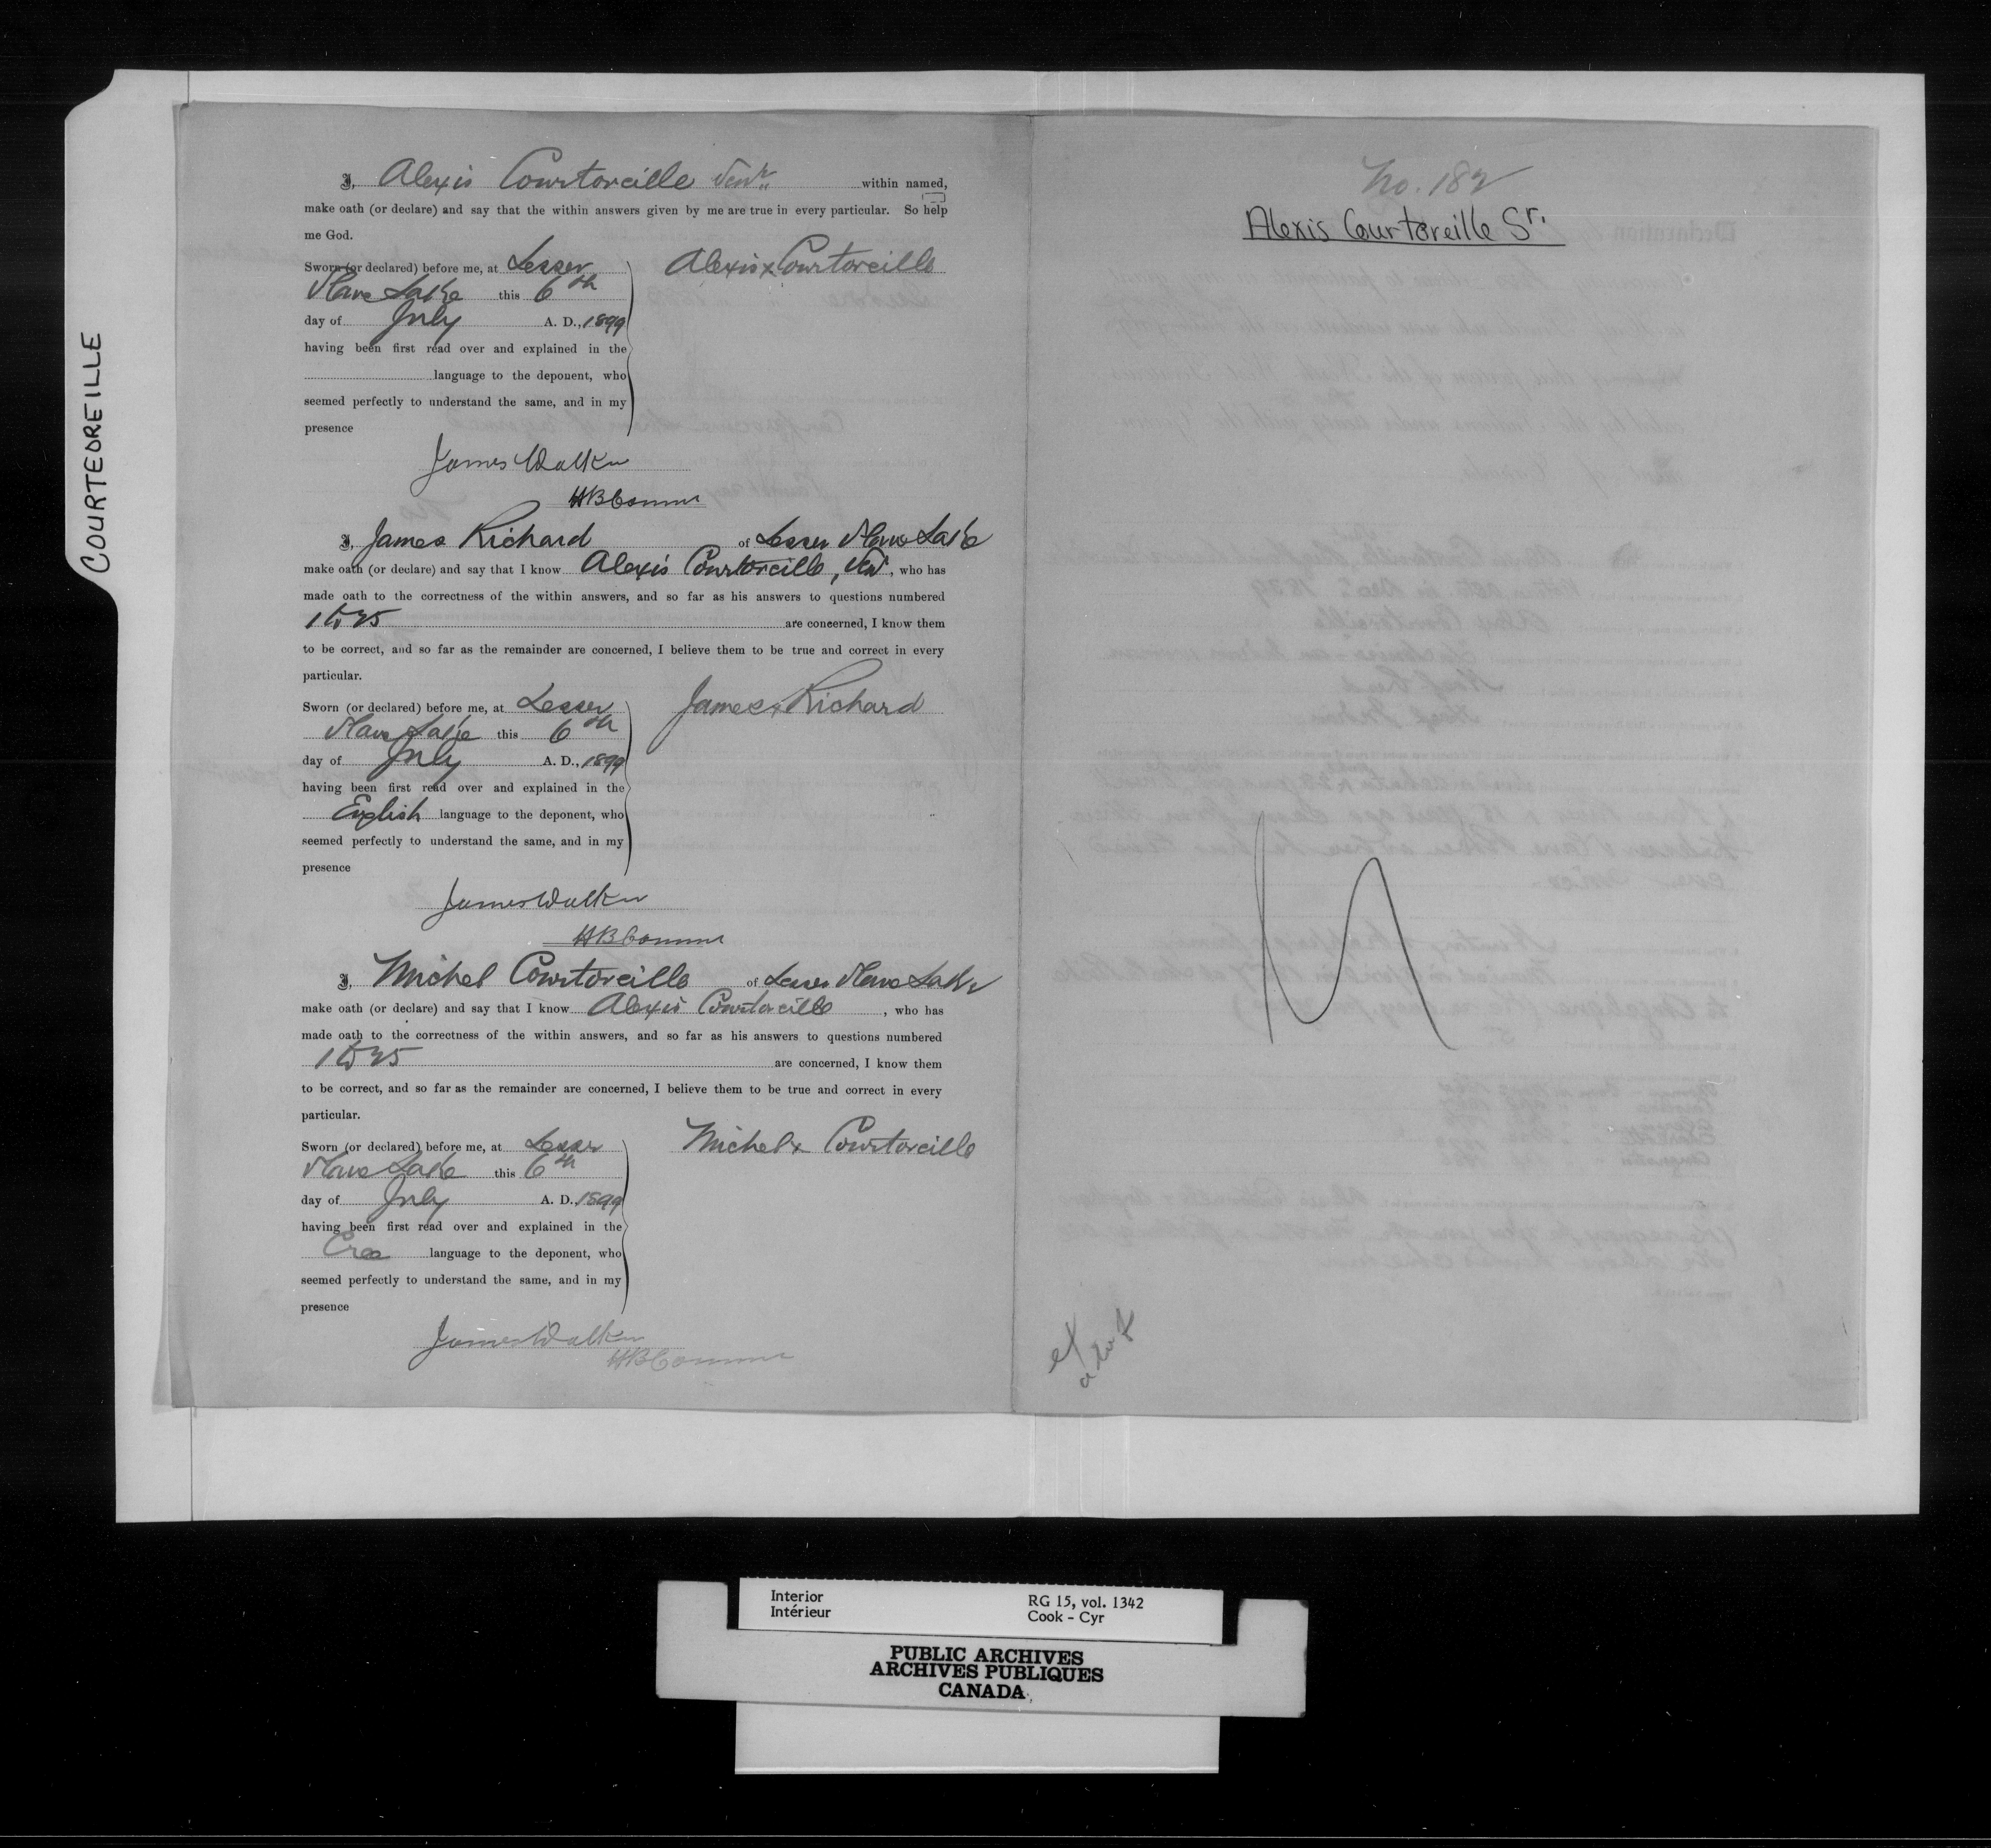 COURTEOREILLE
I, Alexis Courtoreille Senr within named,
make oath (or declare) and say that the within answers given by me are true in every particular. So help
me God.
Sworn (or declared) before me, at Lesser
Slave Lake this 6th
day of July A. D., 1899
having been first read over and explained in the
language to the deponent, who
seemed perfectly to understand the same, and in my
presence
Alexis x Courtoreille
James Walker
HB Commr
I, James Richard of Lesser Slave Lake
make oath (or declare) and say that I know Alexis Courtoreille, Senr, who has
made oath to the correctness of the within answers, and so far as his answers to questions numbered
1 to 25 are concerned, I know them
to be correct, and so far as the remainder are concerned, I believe them to be true and correct in every
particular.
Sworn (or declared) before me, at Lesser
Slave Lake this 6th
day of July A. D., 1899
having been first read over and explained in the
English language to the deponent, who
seemed perfectly to understand the same, and in my
presence
James x Richard
James Walker
HB Commr
I, Michel Courtoreille of Lesser Slave Lake
make oath (or declare) and say that I know Alexis Courtoreille, who has
made oath to the correctness of the within answers, and so far as his answers to questions numbered
1 to 25 are concerned, I know them
to be correct, and so far as the remainder are concerned, I believe them to be true and correct in every
particular.
Sworn (or declared) before me, at Lesser
Slave Lake this 6th
day of July A. D., 1899
having been first read over and explained in the
Cree language to the deponent, who
seemed perfectly to understand the same, and in my
presence
Michel x Courtoreille
James Walker
HB Commr
No. 182
Alexis Courtoreille Sr.
Interior
Intérieur
RG 15, vol. 1342
Cook - Cyr
PUBLIC ARCHIVES
ARCHIVES PUBLIQUES
CANADA